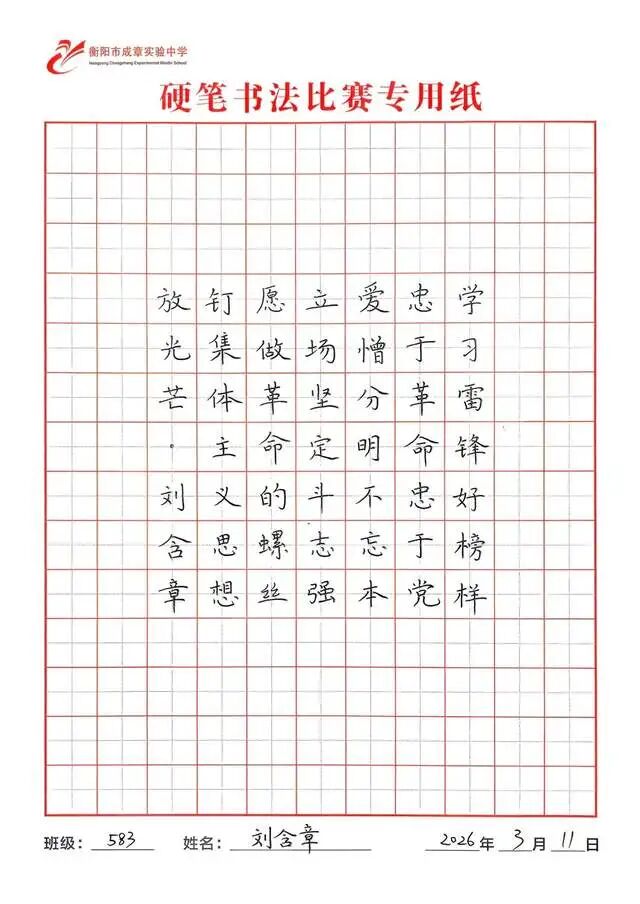 衡阳市成章实验中学
Hengyang Chengzhang Experimental Middle School
硬笔书法比赛专用纸
学习雷锋好榜样
忠于革命忠于党
爱憎分明不忘本
立场坚定斗志强
愿做革命的螺丝
钉集体主义思想
放光芒·刘含章
班级：583 姓名：刘含章 2026年3月11日